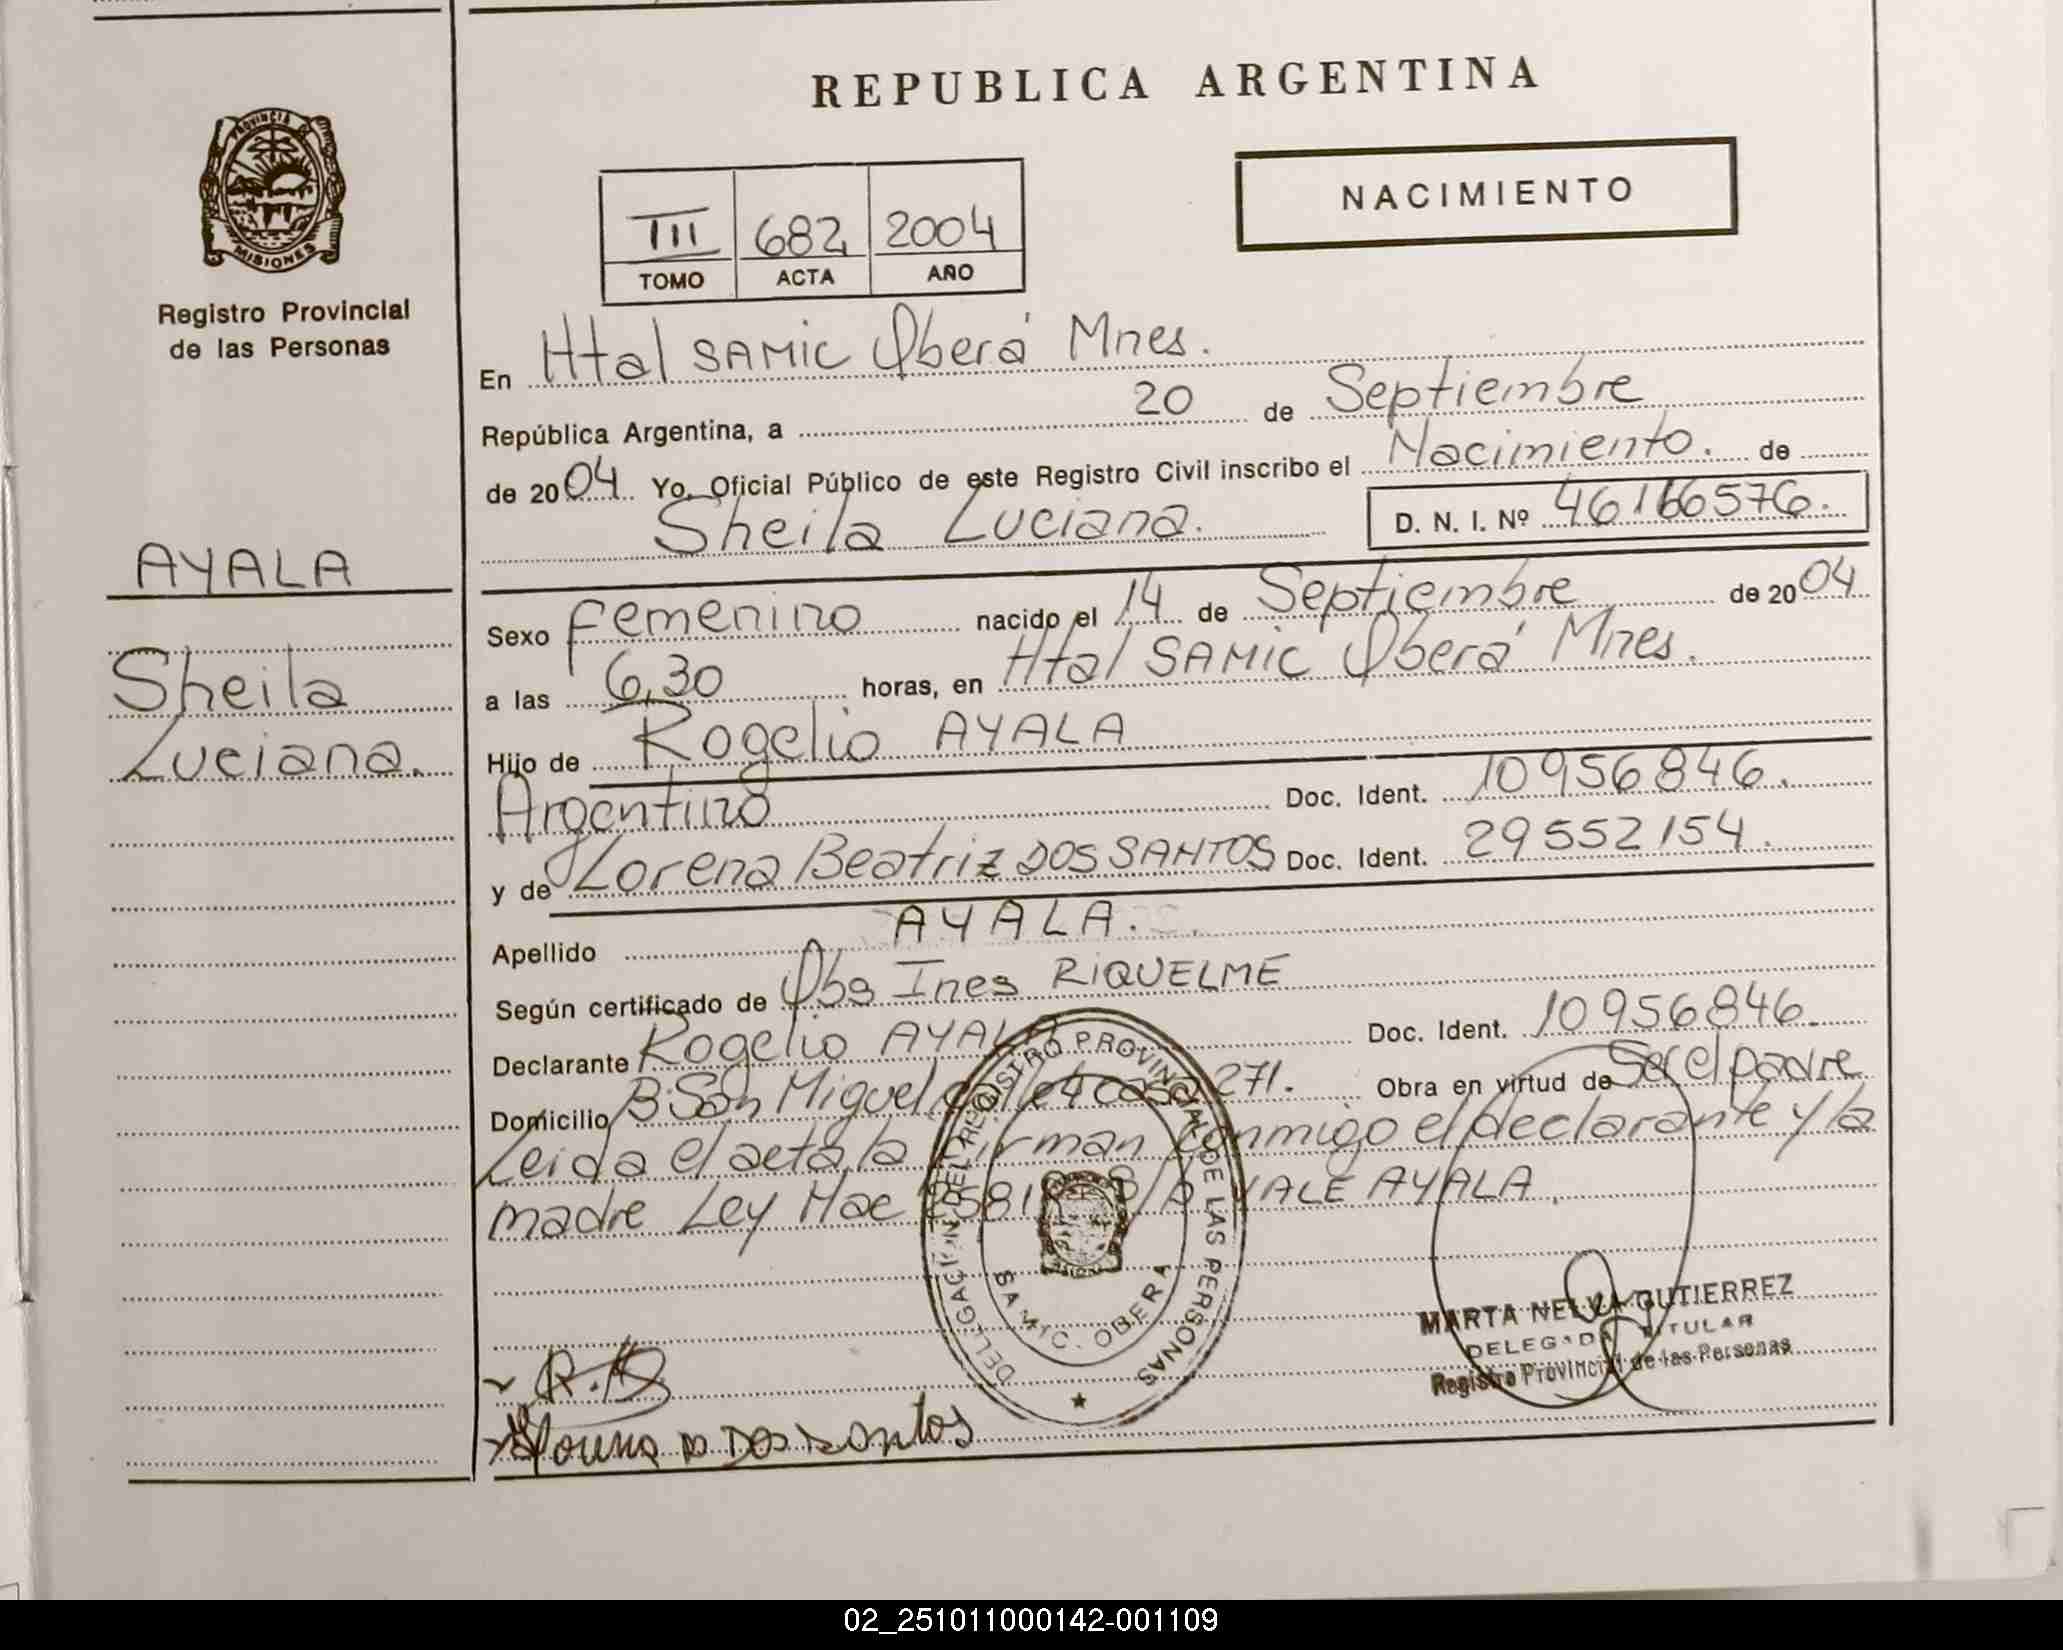 REPUBLICA ARGENTINA
NACIMIENTO
III 682 2004
TOMO ACTA AÑO
PROVINCIA DE
MISIONES
Registro Provincial
de las Personas
AYALA
Sheila
Luciana.
En Htal SAMIC Oberá Mnes.
República Argentina, a 20 de Septiembre
de 2004 Yo, Oficial Público de este Registro Civil inscribo el Nacimiento. de
Sheila Luciana. D. N. I. Nº 46166576.
Sexo Femenino nacido el 14 de Septiembre de 2004
a las 6,30 horas, en Htal SAMIC Oberá Mnes.
Hijo de Rogelio AYALA
Argentino Doc. Ident. 10956846.
y de Lorena Beatriz DOS SANTOS Doc. Ident. 29552154.
Apellido AYALA.
Según certificado de Obs Ines RIQUELME
Declarante Rogelio AYALA Doc. Ident. 10956846.
Domicilio B: San Miguel calle 4 casa 271. Obra en virtud de Ser el padre
Leida el acta, la firman conmigo el declarante y la
madre Ley Nac VALE AYALA.
DELEGACIÓN DEL REGISTRO PROVINCIAL DE LAS PERSONAS
SAMIC. OBERA
MARTA NELVA GUTIERREZ
DELEGADA TITULAR
Registro Provincial de las Personas
R.A
DOS Santos
02_251011000142-001109